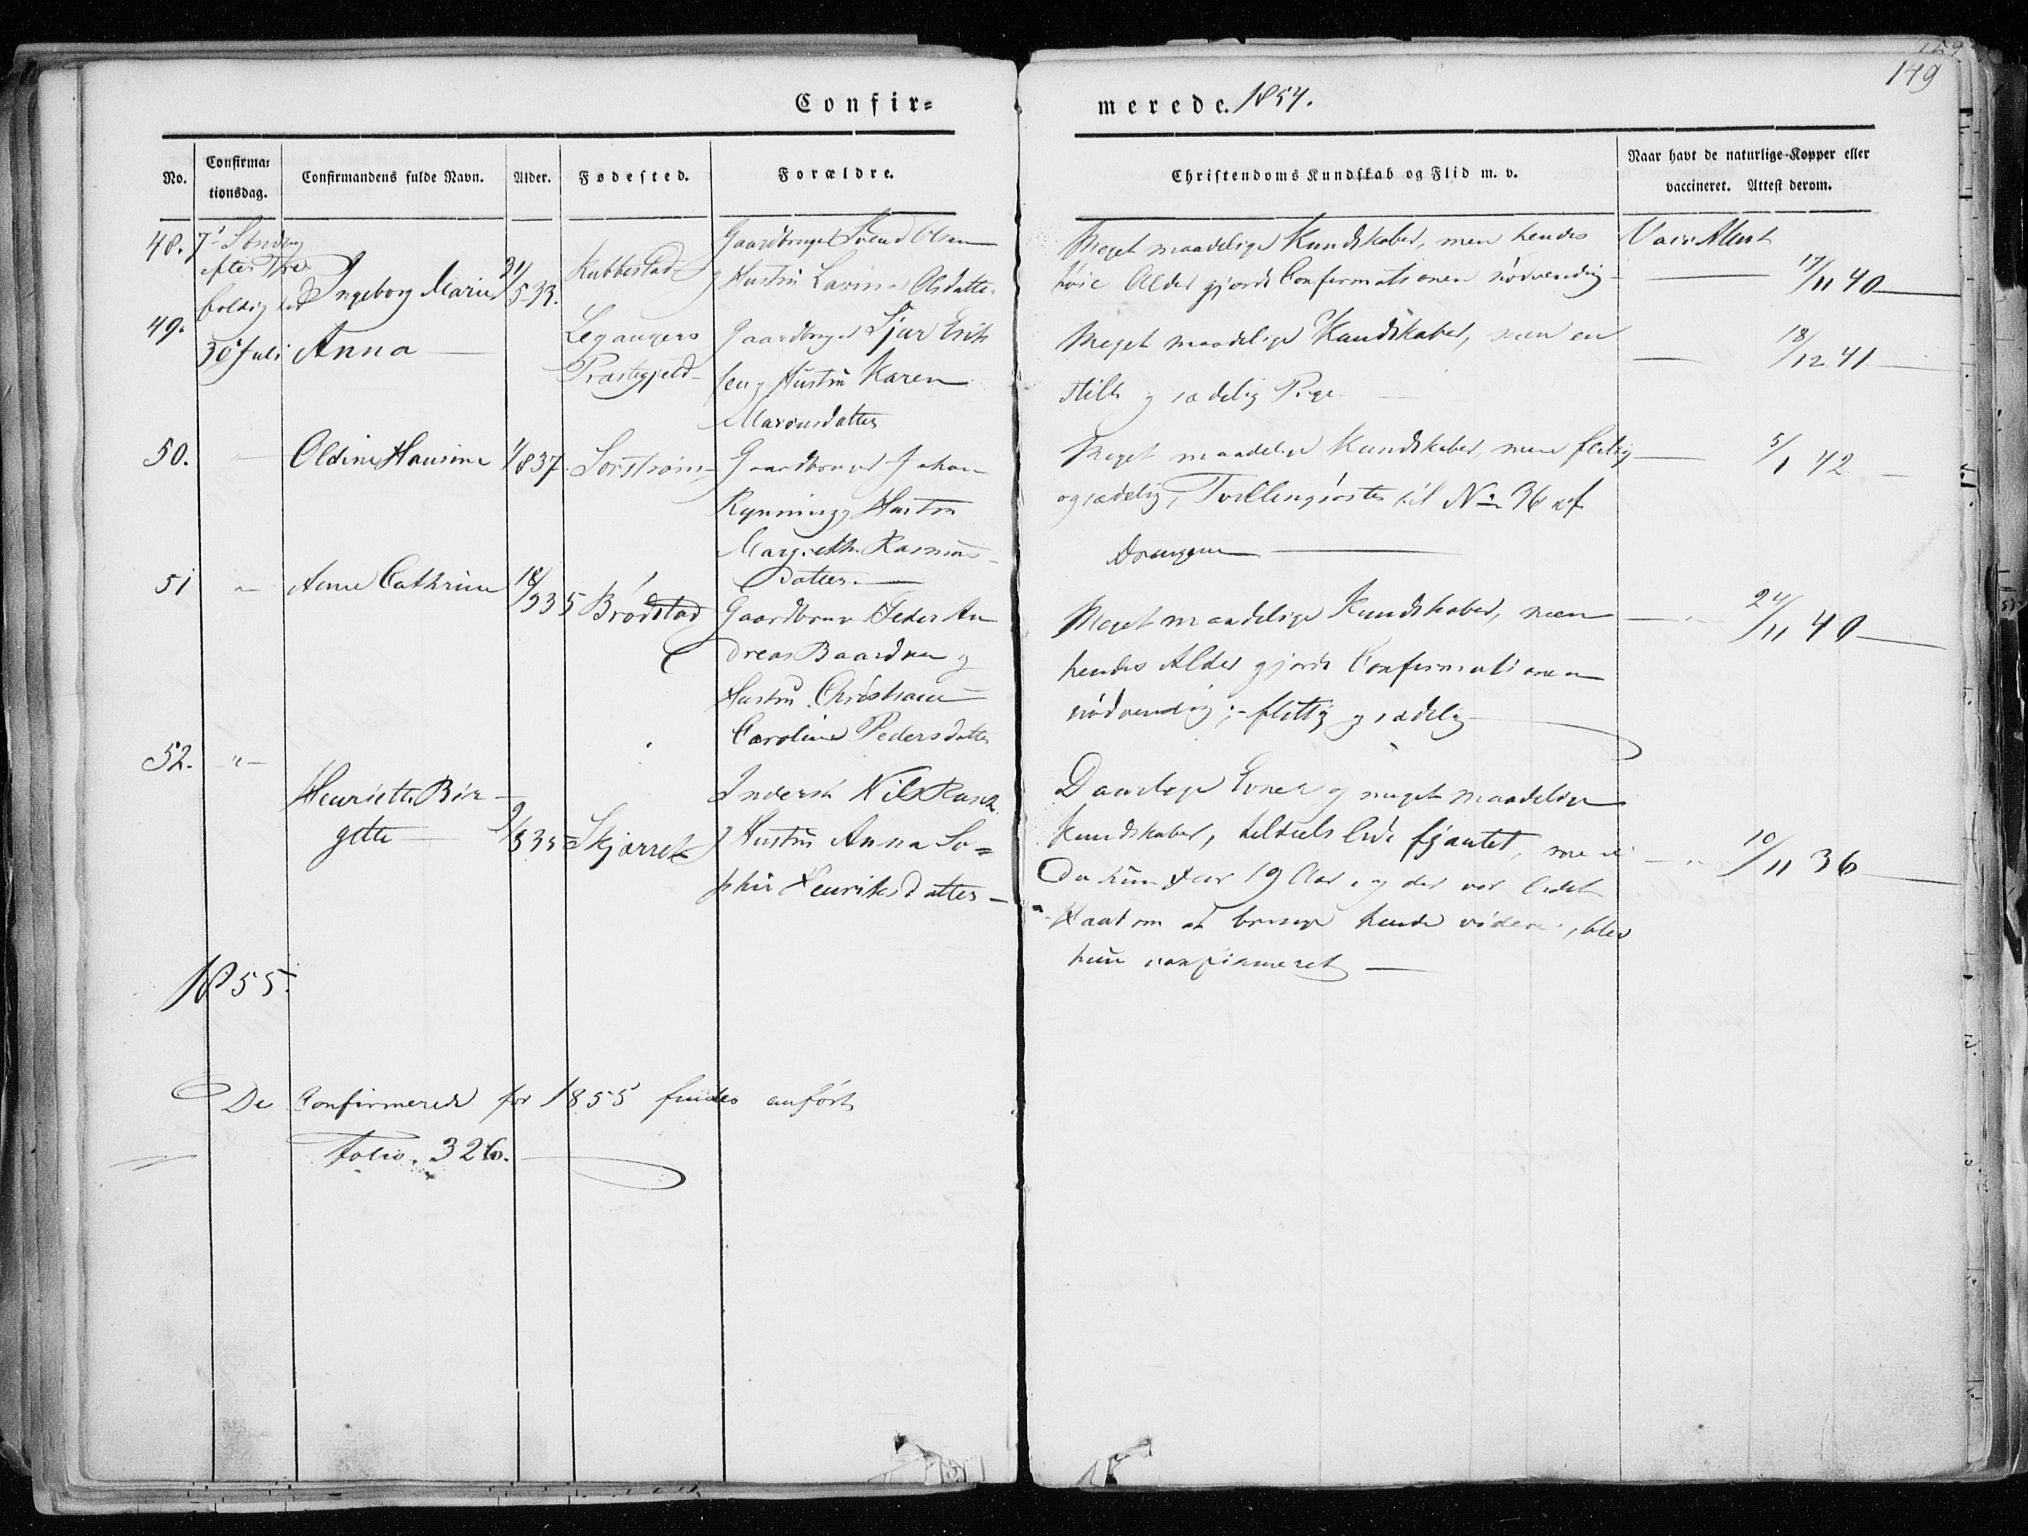 149
Confir=
merede. 1854.
No.
Confirma=
tionsdag.
Confirmandens fulde Navn.
Alder.
Fødested.
Forældre.
Christendoms Kundskab og Flid m. v.
Naar havt de naturlige Kopper eller
vaccineret. Attest derom.
48. 7 Søndag
efter Tre
foldighed
Ingeborg Marie
31/5 33.
Kubbestad
Gaardbruger Svend Olsen
Hustru Olsdatter
Meget maadelige Kundskaber, men hendes
høie Alder gjorde Confirmationen nødvendig
Vacc Attest
17/11 40
49.
30 Juli
Anna
Leganger
Præstegjeld
Gaardbruger Sjur Erik
sen g Hustru Karen
Meget maadelige Kundskaber, men en
stille g sædelig Pige
18/12 41
50.
Oldine Hansine
1/8 37.
Gaardbruger Johan
Rynning g Hustru
Margrethe Rasmus
datter.
Meget maadelige Kundskaber, men flittig
og sædelig, Tvillingsøster til No 36 af
Drengene
5/1 42
51
Anne Cathrine
18/9 35
Brødstad
Gaardbruger Peder An
dreas Baardsen g
Hustru Christiane
Caroline Pedersdatter
Meget maadelige Kundskaber, men
hendes Alder gjorde Confirmationen
nødvendig; - flittig g sædelig
24/11 40
52.
Henriette Bir
gitte
35
Inderst Nils
g Hustru Anna So=
phie Henriksdatter
Daarlige Evner og meget maadelige
Kundskaber, tildeels lidt fjantet, men
Da hun var 19 Aar, og der var lidet
Haab om at bringe hende videre, blev
hun confirmeret
10/11 36
1855.
De Confirmerede for 1855 findes anført
Folio. 326.